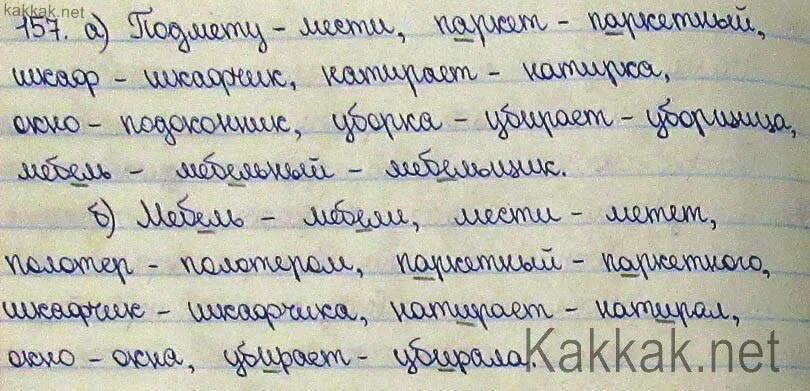 kakkak.net
157. а) Подмету - мести, паркет - паркетный,
шкаф - шкафчик, натирает - натирка,
окно - подоконник, уборка - убирает - уборщица,
мебель - мебельный - мебельщик.
б) Мебель - мебели, мести - метет,
полотер - полотером, паркетный - паркетного,
шкафчик - шкафчика, натирает - натирал,
окно - окна, убирает - убирала.
Kakkak.net